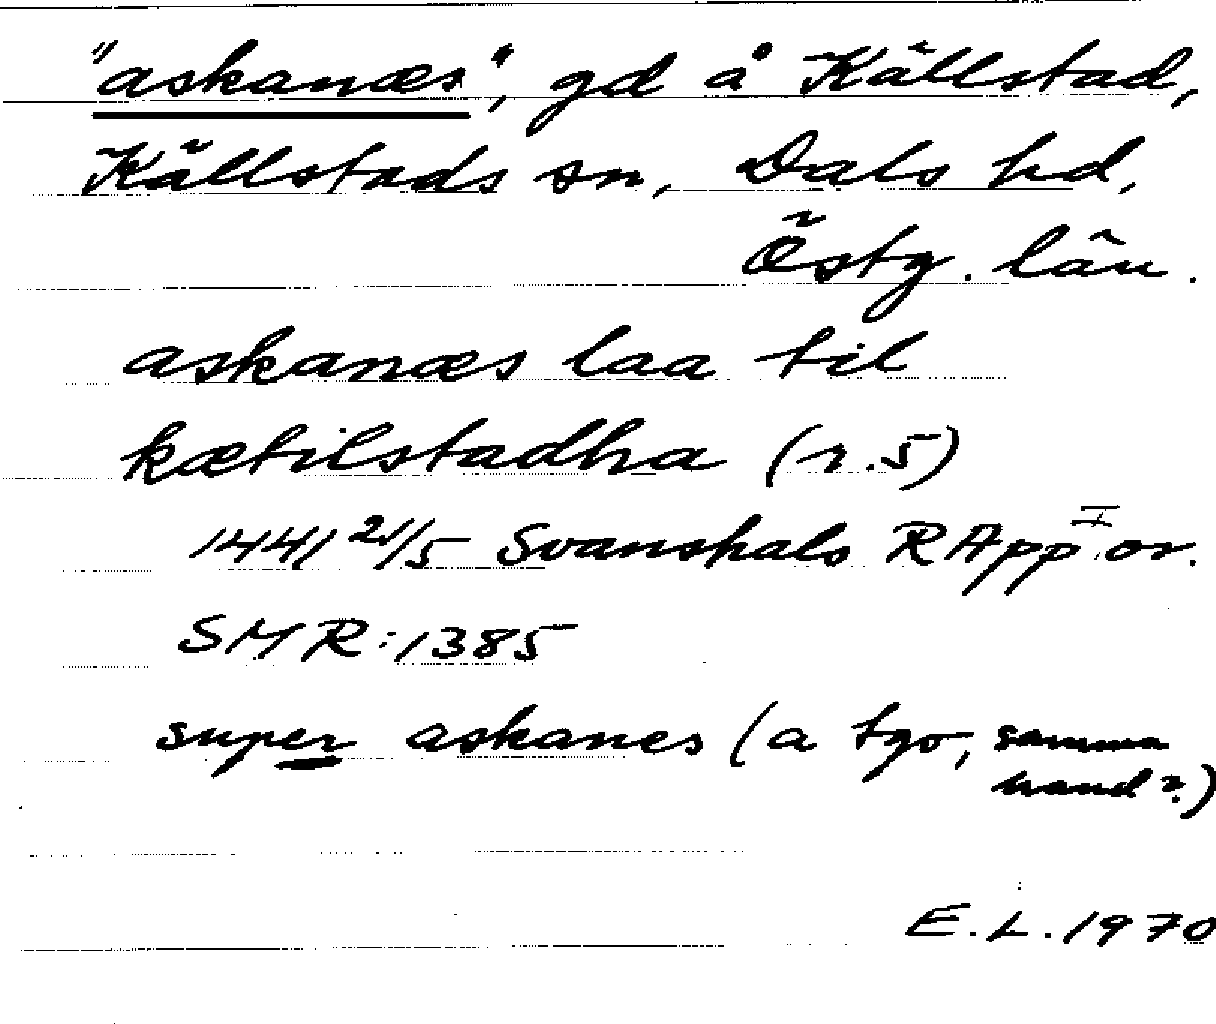 "askanæs", gd å Källstad,
Källstads sn, Dals hd,
Östg. län.
askanæs laa til
kætilstadha (r.5)
1441 21/5 Svanshals RApp I or.
SMR:1385
super askanes (a tgo, samma
hand?)
E.L.1970